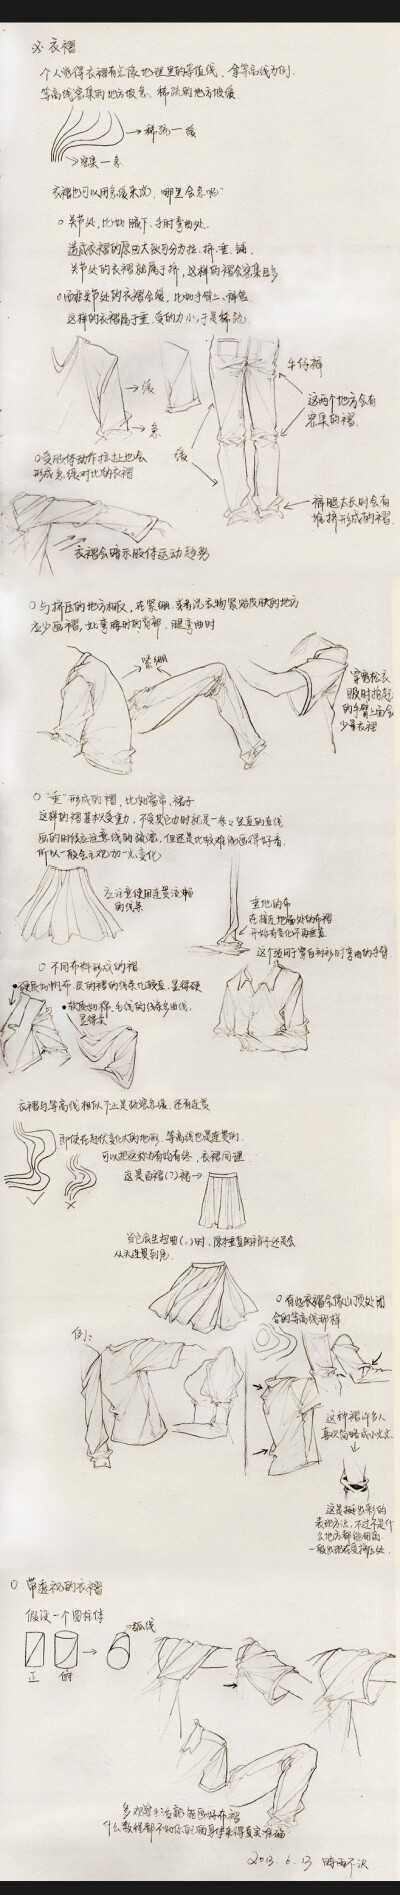 衣褶
个人觉得衣褶有点像地理里的等值线，拿等高线为例.
等高线密集的地方坡急、稀疏的地方坡缓
稀疏—缓
密集—急
衣褶也可以用急缓来说，哪里会急呢
关节处，比如腋下、手肘弯曲处.
造成衣褶的原因大致可分为拉、挤、垂、铺.
关节处的衣褶就属于挤，这样的褶会密集且多
而非关节处的衣褶会缓，比如手臂上、裤管
这样的衣褶属于垂.受的力小，于是稀疏.
缓
急
牛仔裤
这两个地方会有
密集的褶.
缓
受肢体动作拉扯也会
形成急缓对比的衣褶
裤腿太长时会有
堆挤形成的褶
衣褶会暗示肢体运动趋势
与挤压的地方相反，在紧绷、或者说衣物紧贴皮肤的地方
应少画褶，如弯腰时的背部，腿弯曲时
紧绷
穿宽松衣
服时抬起
的手臂上面会
少量衣褶
“垂”形成的褶，比如窗帘、裙子
这样的褶基本只受重力，不受其它力时就是一条条竖直的直线
画的时候应注意线的疏密，但还是比较难画得好看.
所以一般会主观加一点变化
应注意使用连贯流畅
的线条
垂地的布
在接近地面处的布褶
开始有变化不再垂直
这个适用于穿白衬衫时弯曲的手臂
不同布料形成的褶
显得硬
显得柔
衣褶与等高线相似不止是疏密急缓，还有连贯
即使在起伏变化大的地形，等高线也是连贯的.
可以把这称为有始有终，衣褶同理
这是百褶(?)裙
从头连贯到尾
有些衣褶会像山顶处闭
合的等高线那样
例:
这种褶许多人
喜欢简略成小尖尖
表现方法，不过不是什
么地方都能用的
带透视的衣褶
假设一个圆柱体
弧线
正
俯
多观察生活就能画好布褶
什么教程都不如你自己的身体来得真实准确
2013.6.13